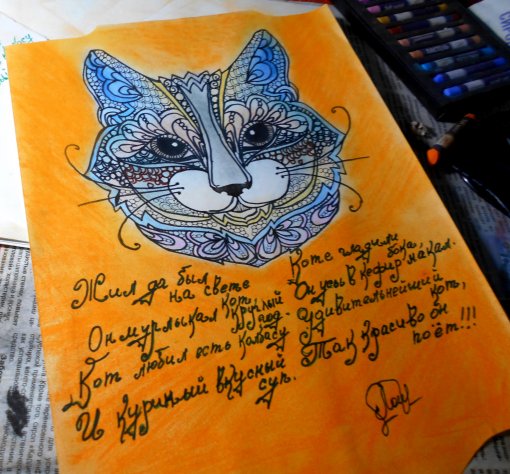 Жил да был
на свете
кот,
Он мурлыкал круглый
год.
Кот любил есть колбасу
И куриный вкусный
суп.
Коте гладили
бока,
Он усы в кефир макал.
Удивительнейший
кот,
Так красиво он
поёт!!!